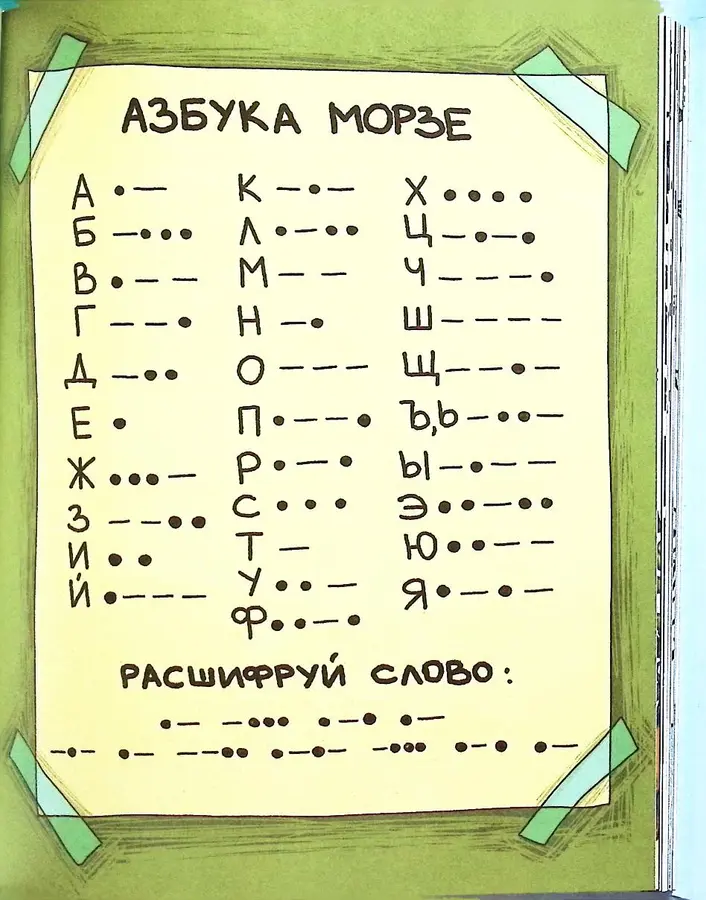 АЗБУКА МОРЗЕ
А •—
Б —•••
В •——
Г ——•
Д —••
Е •
Ж •••—
З ——••
И ••
Й •———
К —•—
Л •—••
М ——
Н —•
О ———
П •——•
Р •—•
С •••
Т —
У ••—
Ф ••—•
Х ••••
Ц —•—•
Ч ———•
Ш ————
Щ ——•—
Ъ,Ь —••—
Ы —•——
Э ••—••
Ю ••——
Я •—•—
РАСШИФРУЙ СЛОВО:
•— —••• •—• •—
—•— •— ——•• •—•— —••• •—• •—